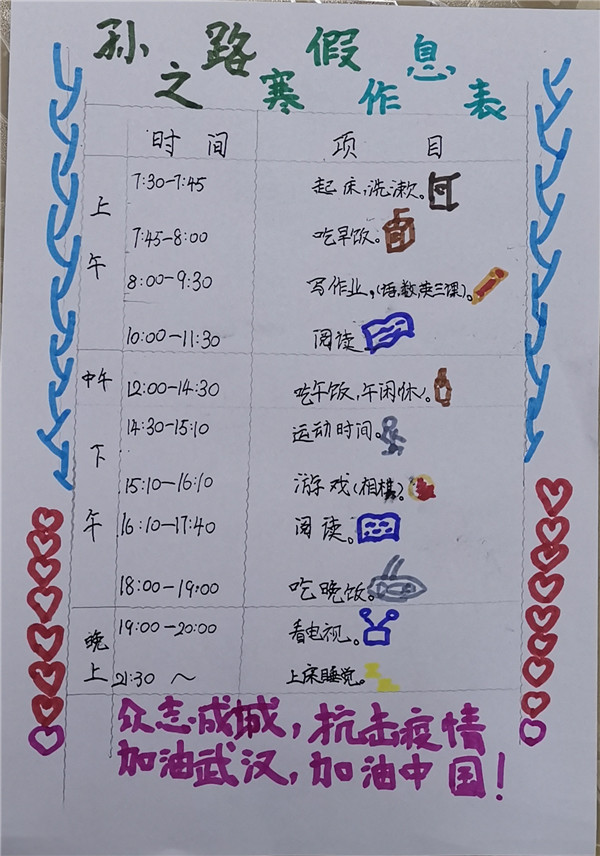 孙路之寒假作息表
时间 项目
上午
7:30-7:45 起床,洗漱。
7:45-8:00 吃早饭。
8:00-9:30 写作业,(语数英三课)。
10:00-11:30 阅读
中午 12:00-14:30 吃午饭,午闲休。
下午
14:30-15:10 运动时间。
15:10-16:10 游戏(相棋)。
16:10-17:40 阅读。
18:00-19:00 吃晚饭。
晚上
19:00-20:00 看电视。
21:30 ~ 上床睡觉。
众志成城,抗击疫情
加油武汉,加油中国!